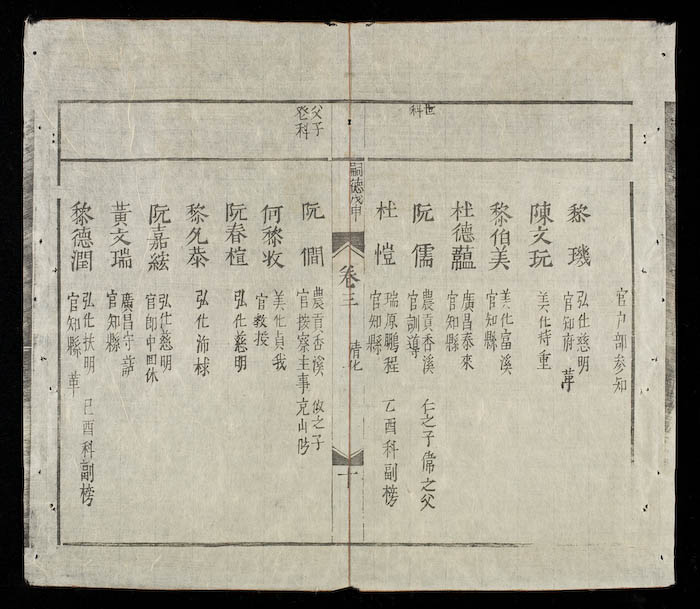 官户部參知
黎璣
弘化慈明
官知府 革
陳文玩
美化
黎伯美
美化富溪
官知縣
杜德蘊
廣昌泰來
官知縣
世科
阮儒
農貢香溪 仁之子常之父
官訓導
杜愷
瑞原鵬程 乙酉科副榜
官知縣
嗣德戊申
卷三 清化
十
父子登科
阮僩
農貢香溪 攸之子
官按察主事
何黎牧
美化貞我
官教授
阮春楦
弘化慈明
黎允恭
弘化沛
阮嘉絃
弘化慈明
官郎中回休
黃文瑞
廣昌守
官知縣
黎德潤
弘化扶明 己酉科副榜
官知縣 革